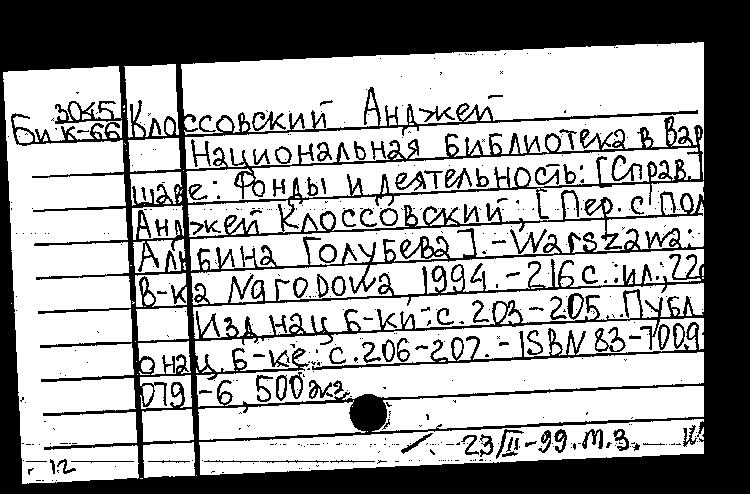 Би 3045 Клоссовский Анджей
К-66
Национальная библиотека в Вар
шаве: Фонды и деятельность: [Справ.]
Анджей Клоссовский; [Пер. с пол
Альбина Голубева]. - Warszawa:
B-ka Narodowa, 1994. - 216 с.: ил.; 22с
Изд. нац. б-ки: с. 203-205. Публ.
о нац. б-ке: с. 206-207. - ISBN 83-7009-
079-6, 500 экз.
23/II-99. М.З.
12